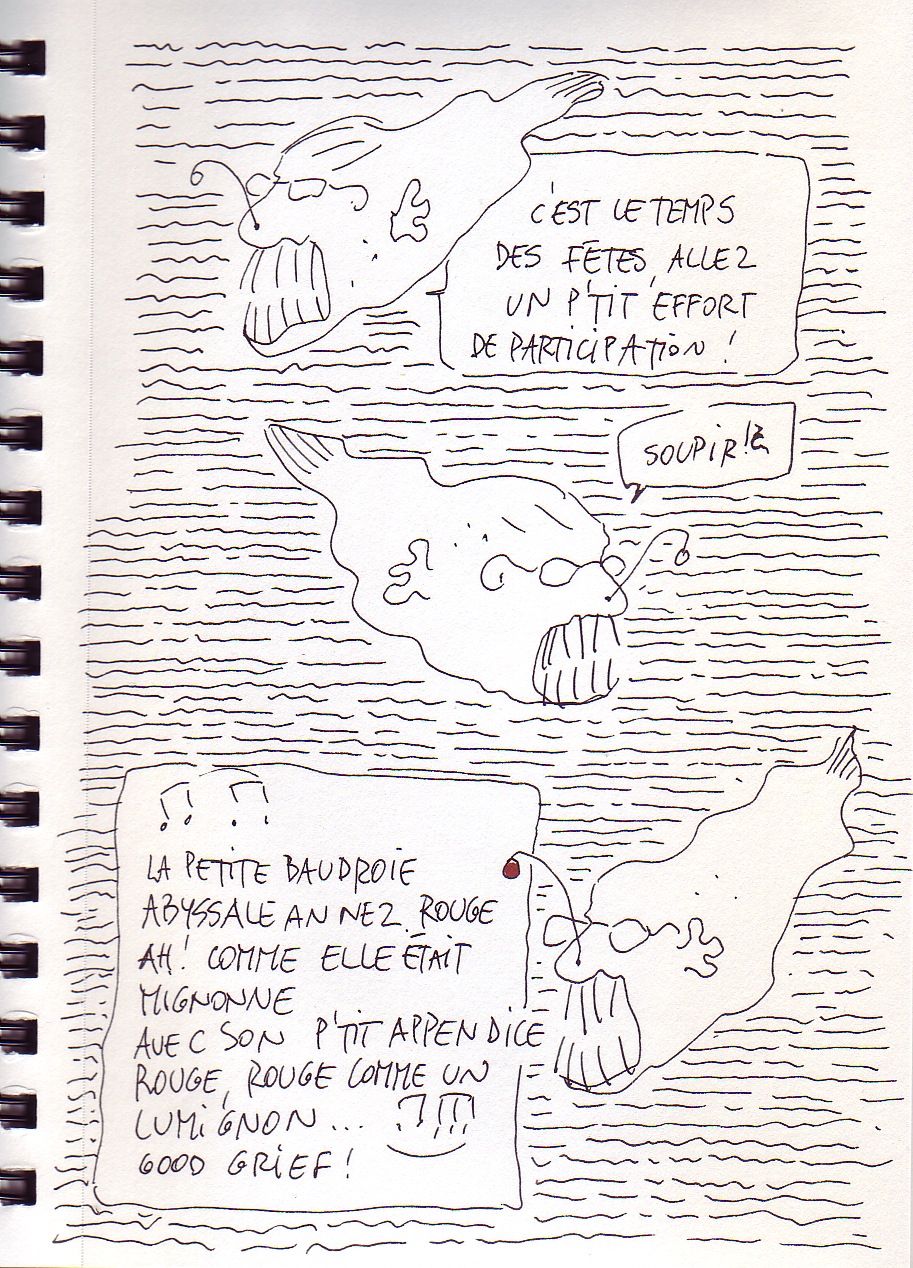 C'EST LE TEMPS
DES FÊTES, ALLEZ
UN P'TIT EFFORT
DE PARTICIPATION !
SOUPIR !
LA PETITE BAUDROIE
ABYSSALE AN NEZ ROUGE
AH! COMME ELLE ÉTAIT
MIGNONNE
AVEC SON P'TIT APPENDICE
ROUGE, ROUGE COMME UN
LUMIGNON...
GOOD GRIEF !